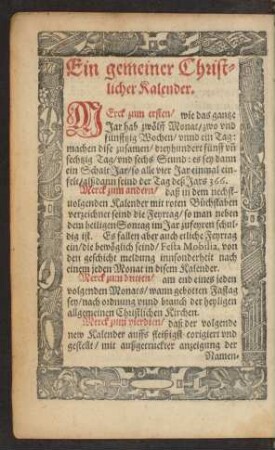 Ein gemeiner Christ-
licher Kalender.
MErck zum ersten/ wie das gantze
Jar hab zwölff Monat/zwo vnd
fünfftzig Wochen/ vnnd ein Tag:
machen dise zusamen/ dreyhundert fünff vñ
sechtzig Tag/ vnd sechs Stund: es sey dann
ein Schalt Jar/ so alle vier Jar einmal ein-
felt/ alßdann seind der Tag deß Jars 366.
Merck zum andern/ daß in dem nechst-
uolgenden Kalender mit roten Büchstaben
verzeichnet seind die Feyrtag/ so man neben
dem heiligen Sontag im Jar zufeyren schul-
dig ist. Es fallen aber auch etliche Feyrtag
ein/ die bewöglich seind/ Festa Mobilia, von
den geschicht meldung innsonderheit nach
einem jeden Monat in disem Kalender.
Merck zum dritten/ am end eines jeden
volgenden Monats/ wann gebotten Fastag
sey/ nach ordnung vnnd brauch der heyligen
allgemeinen Christlichen Kirchen.
Merck zum vierdten/ daß der volgende
new Kalender auffs fleissigst corigiert vnd
gestellt/ mit außgetruckter anzeigung der
Namen-